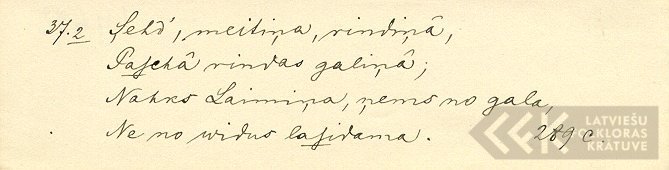 37.2 Sehd', meitiņa, rindiņâ,
Paschâ rindas galiņâ;
Nahks Laimiņa, ņems no gala,
Ne no widus lasidama. 289 c.
LATVIEŠU
FOLKLORAS
KRĀTUVE